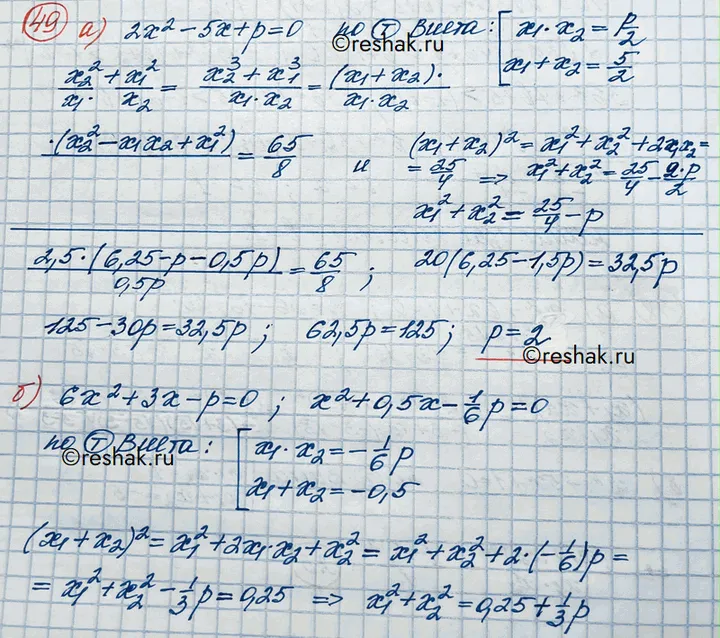 49 а) 2x² − 5x + p = 0 по Т Виета: [ x₁ · x₂ = p/2
x₁ + x₂ = 5/2
©reshak.ru
x₂²/x₁ + x₁²/x₂ = (x₂³ + x₁³)/(x₁ · x₂) = (x₁ + x₂) · / (x₁ · x₂)
· (x₂² − x₁x₂ + x₁²) = 65/8 и (x₁ + x₂)² = x₁² + x₂² + 2x₁x₂ =
= 25/4 => x₁² + x₂² = 25/4 − 2·p/2
x₁² + x₂² = 25/4 − p
2,5 · (6,25 − p − 0,5p) / 0,5p = 65/8 ; 20(6,25 − 1,5p) = 32,5p
125 − 30p = 32,5p ; 62,5p = 125 ; p = 2
©reshak.ru
б) 6x² + 3x − p = 0 ; x² + 0,5x − 1/6 p = 0
по Т Виета: [ x₁ · x₂ = −1/6 p
©reshak.ru
x₁ + x₂ = −0,5
(x₁ + x₂)² = x₁² + 2x₁ · x₂ + x₂² = x₁² + x₂² + 2 · (−1/6)p =
= x₁² + x₂² − 1/3 p = 0,25 => x₁² + x₂² = 0,25 + 1/3 p